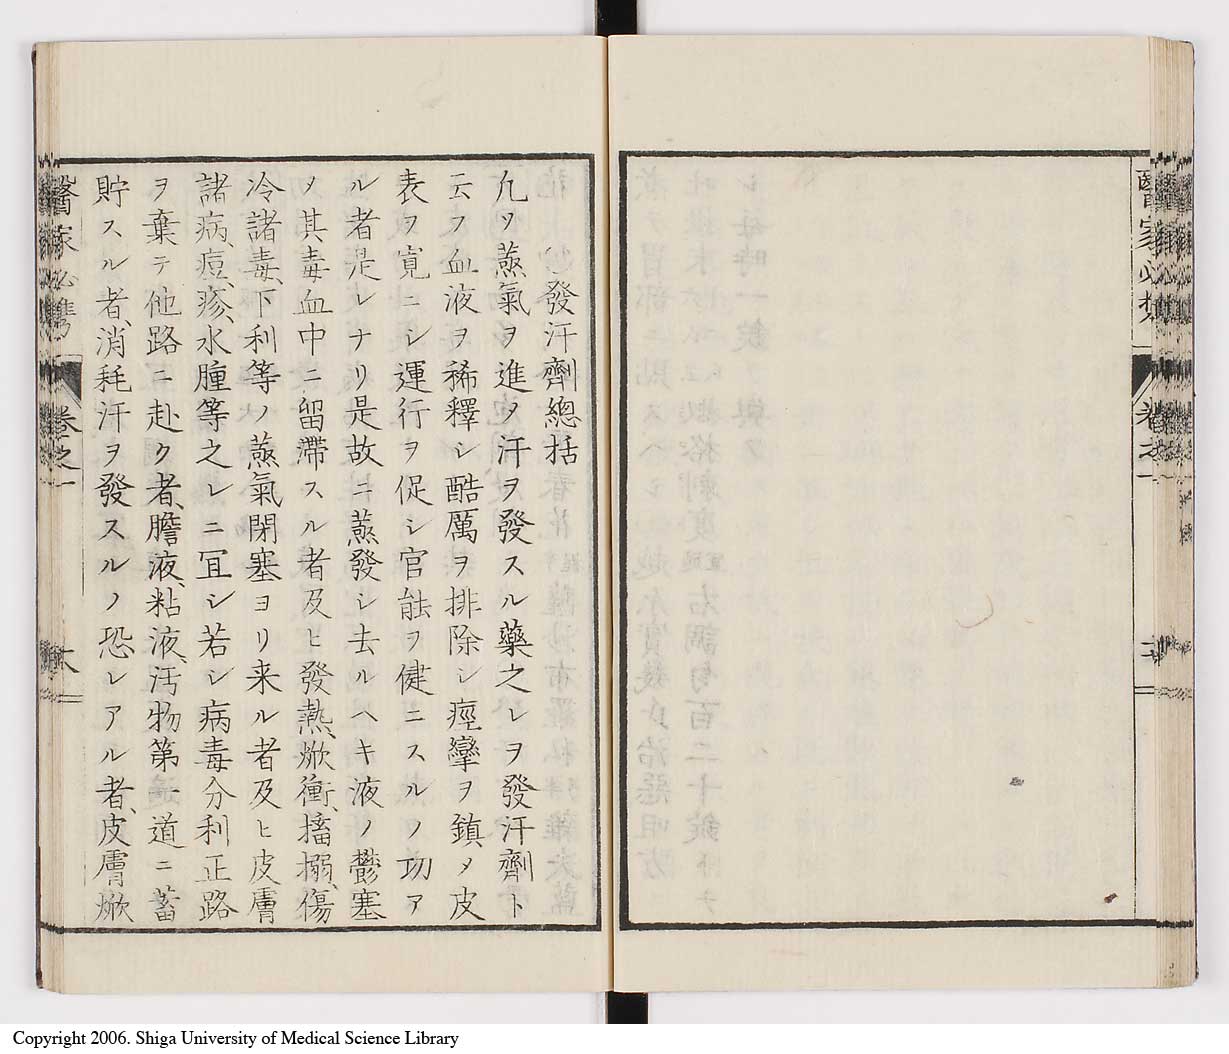 〇發汗劑總括
凢ソ蒸氣ヲ進メ汗ヲ發スル藥之レヲ發汗劑ト
云フ血液ヲ稀釋シ酷厲ヲ排除シ痙攣ヲ鎮メ皮
表ヲ寛ニシ運行ヲ促シ官能ヲ健ニスルノ功ア
ル者是レナリ是故ニ蒸發シ去ルヘキ液ノ鬱塞
ノ其毒血中ニ留滯スル者及ヒ發熱、焮衝、搐搦、傷
冷諸毒、下利等ノ蒸氣閉塞ヨリ来ル者及ヒ皮膚
諸病、痘、疹、水腫等之レニ冝シ若シ病毒分利正路
ヲ棄テ他路ニ赴ク者、膽液、粘液、汚物第一道ニ蓄
貯スル者、消耗汗ヲ發スルノ恐レアル者、皮膚焮
醫家必携
卷之一